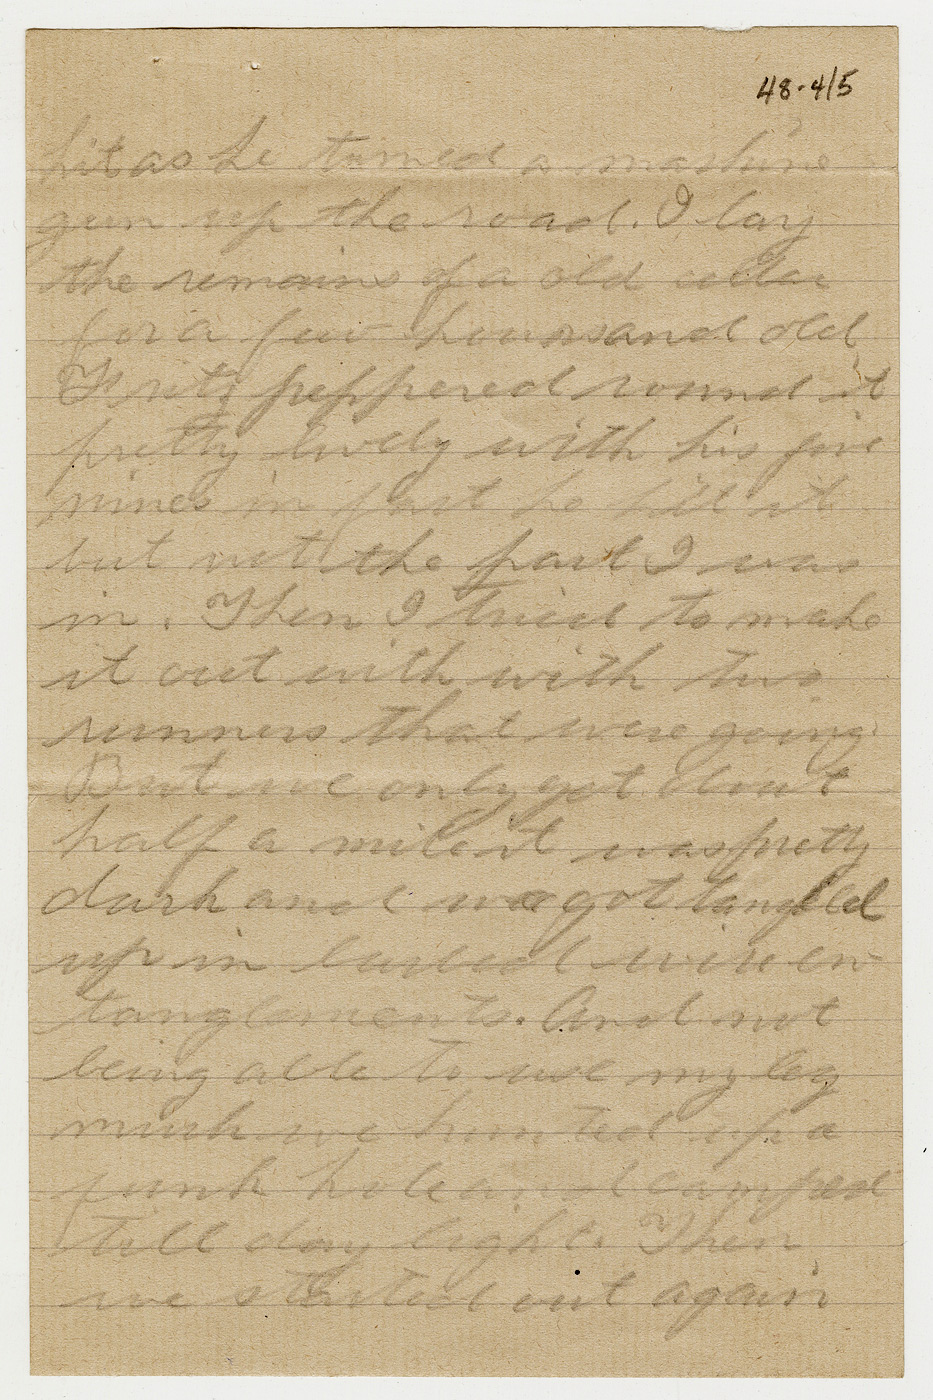 48-4/5
hit as he turned a mashine
gun up the road. I lay
the remains of a old celler
for a few hours and old
Fritz peppered round it
pretty lively with his five
nines in fact he hit it
but not the part I was
in. Then I tried to make
it out with with two
runners that were going
But we only got about
half a mile it was pretty
dark and we got tangled
up in barbed wire en-
tanglements. And not
being able to use my leg
much we hunted up a
funk hole and camped
till day light. Then
we started out again